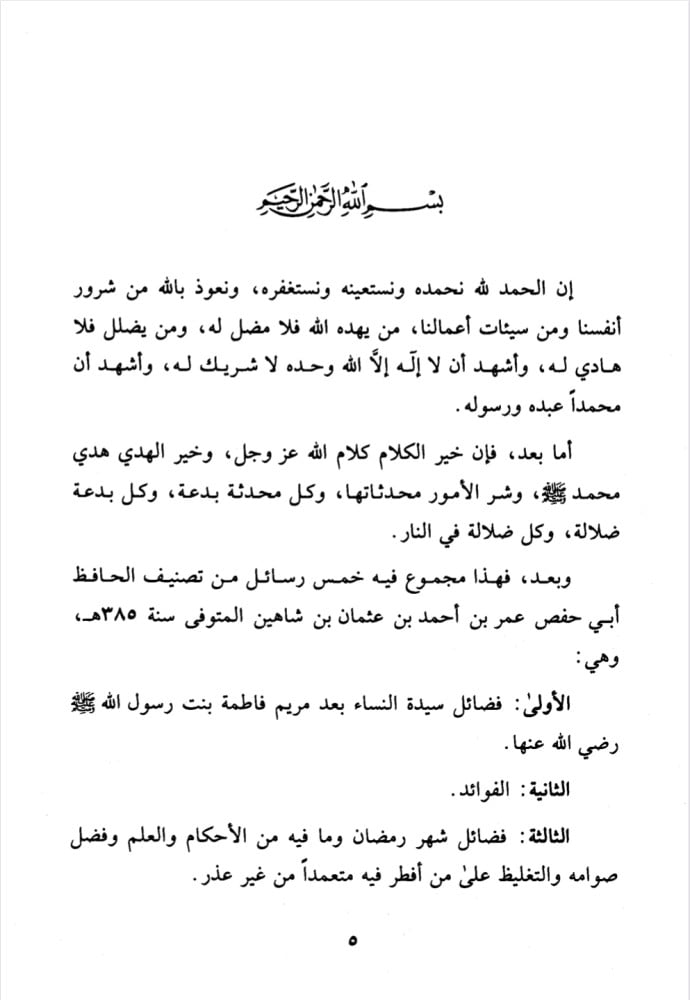 بسم الله الرحمن الرحيم
إن الحمد لله نحمده ونستعينه ونستغفره، ونعوذ بالله من شرور
أنفسنا ومن سيئات أعمالنا، من يهده الله فلا مضل له، ومن يضلل فلا
هادي له، وأشهد أن لا إلٰه إلاَّ الله وحده لا شريك له، وأشهد أن
محمداً عبده ورسوله.
أما بعد، فإن خير الكلام كلام الله عز وجل، وخير الهدي هدي
محمد ﷺ، وشر الأمور محدثاتها، وكل محدثة بدعة، وكل بدعة
ضلالة، وكل ضلالة في النار.
وبعد، فهذا مجموع فيه خمس رسائل من تصنيف الحافظ
أبي حفص عمر بن أحمد بن عثمان بن شاهين المتوفى سنة ٣٨٥هـ،
وهي:
الأولىٰ: فضائل سيدة النساء بعد مريم فاطمة بنت رسول الله ﷺ
رضي الله عنها.
الثانية: الفوائد.
الثالثة: فضائل شهر رمضان وما فيه من الأحكام والعلم وفضل
صوامه والتغليظ علىٰ من أفطر فيه متعمداً من غير عذر.
٥